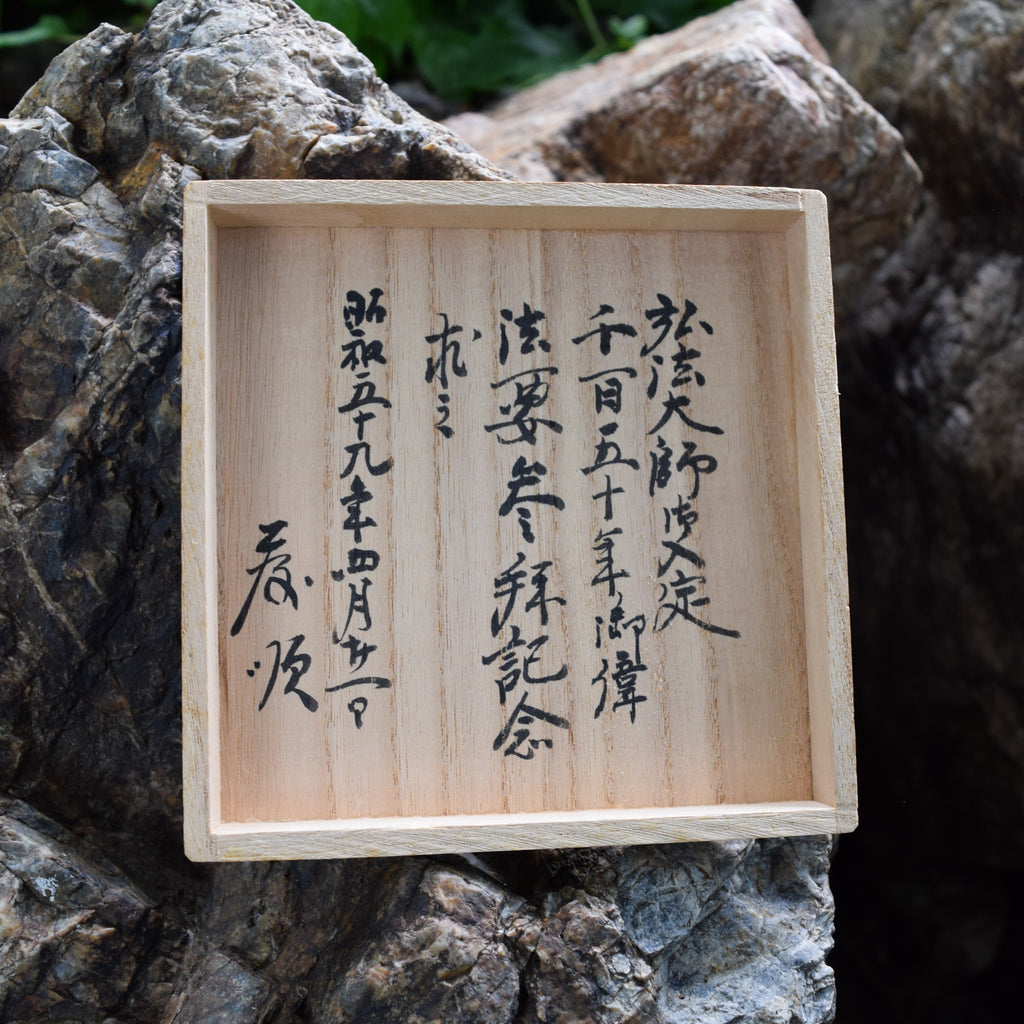 弘法大師御入定
千百五十年御偉
法要参拝記念
求之
昭和五十九年四月廿一日
順